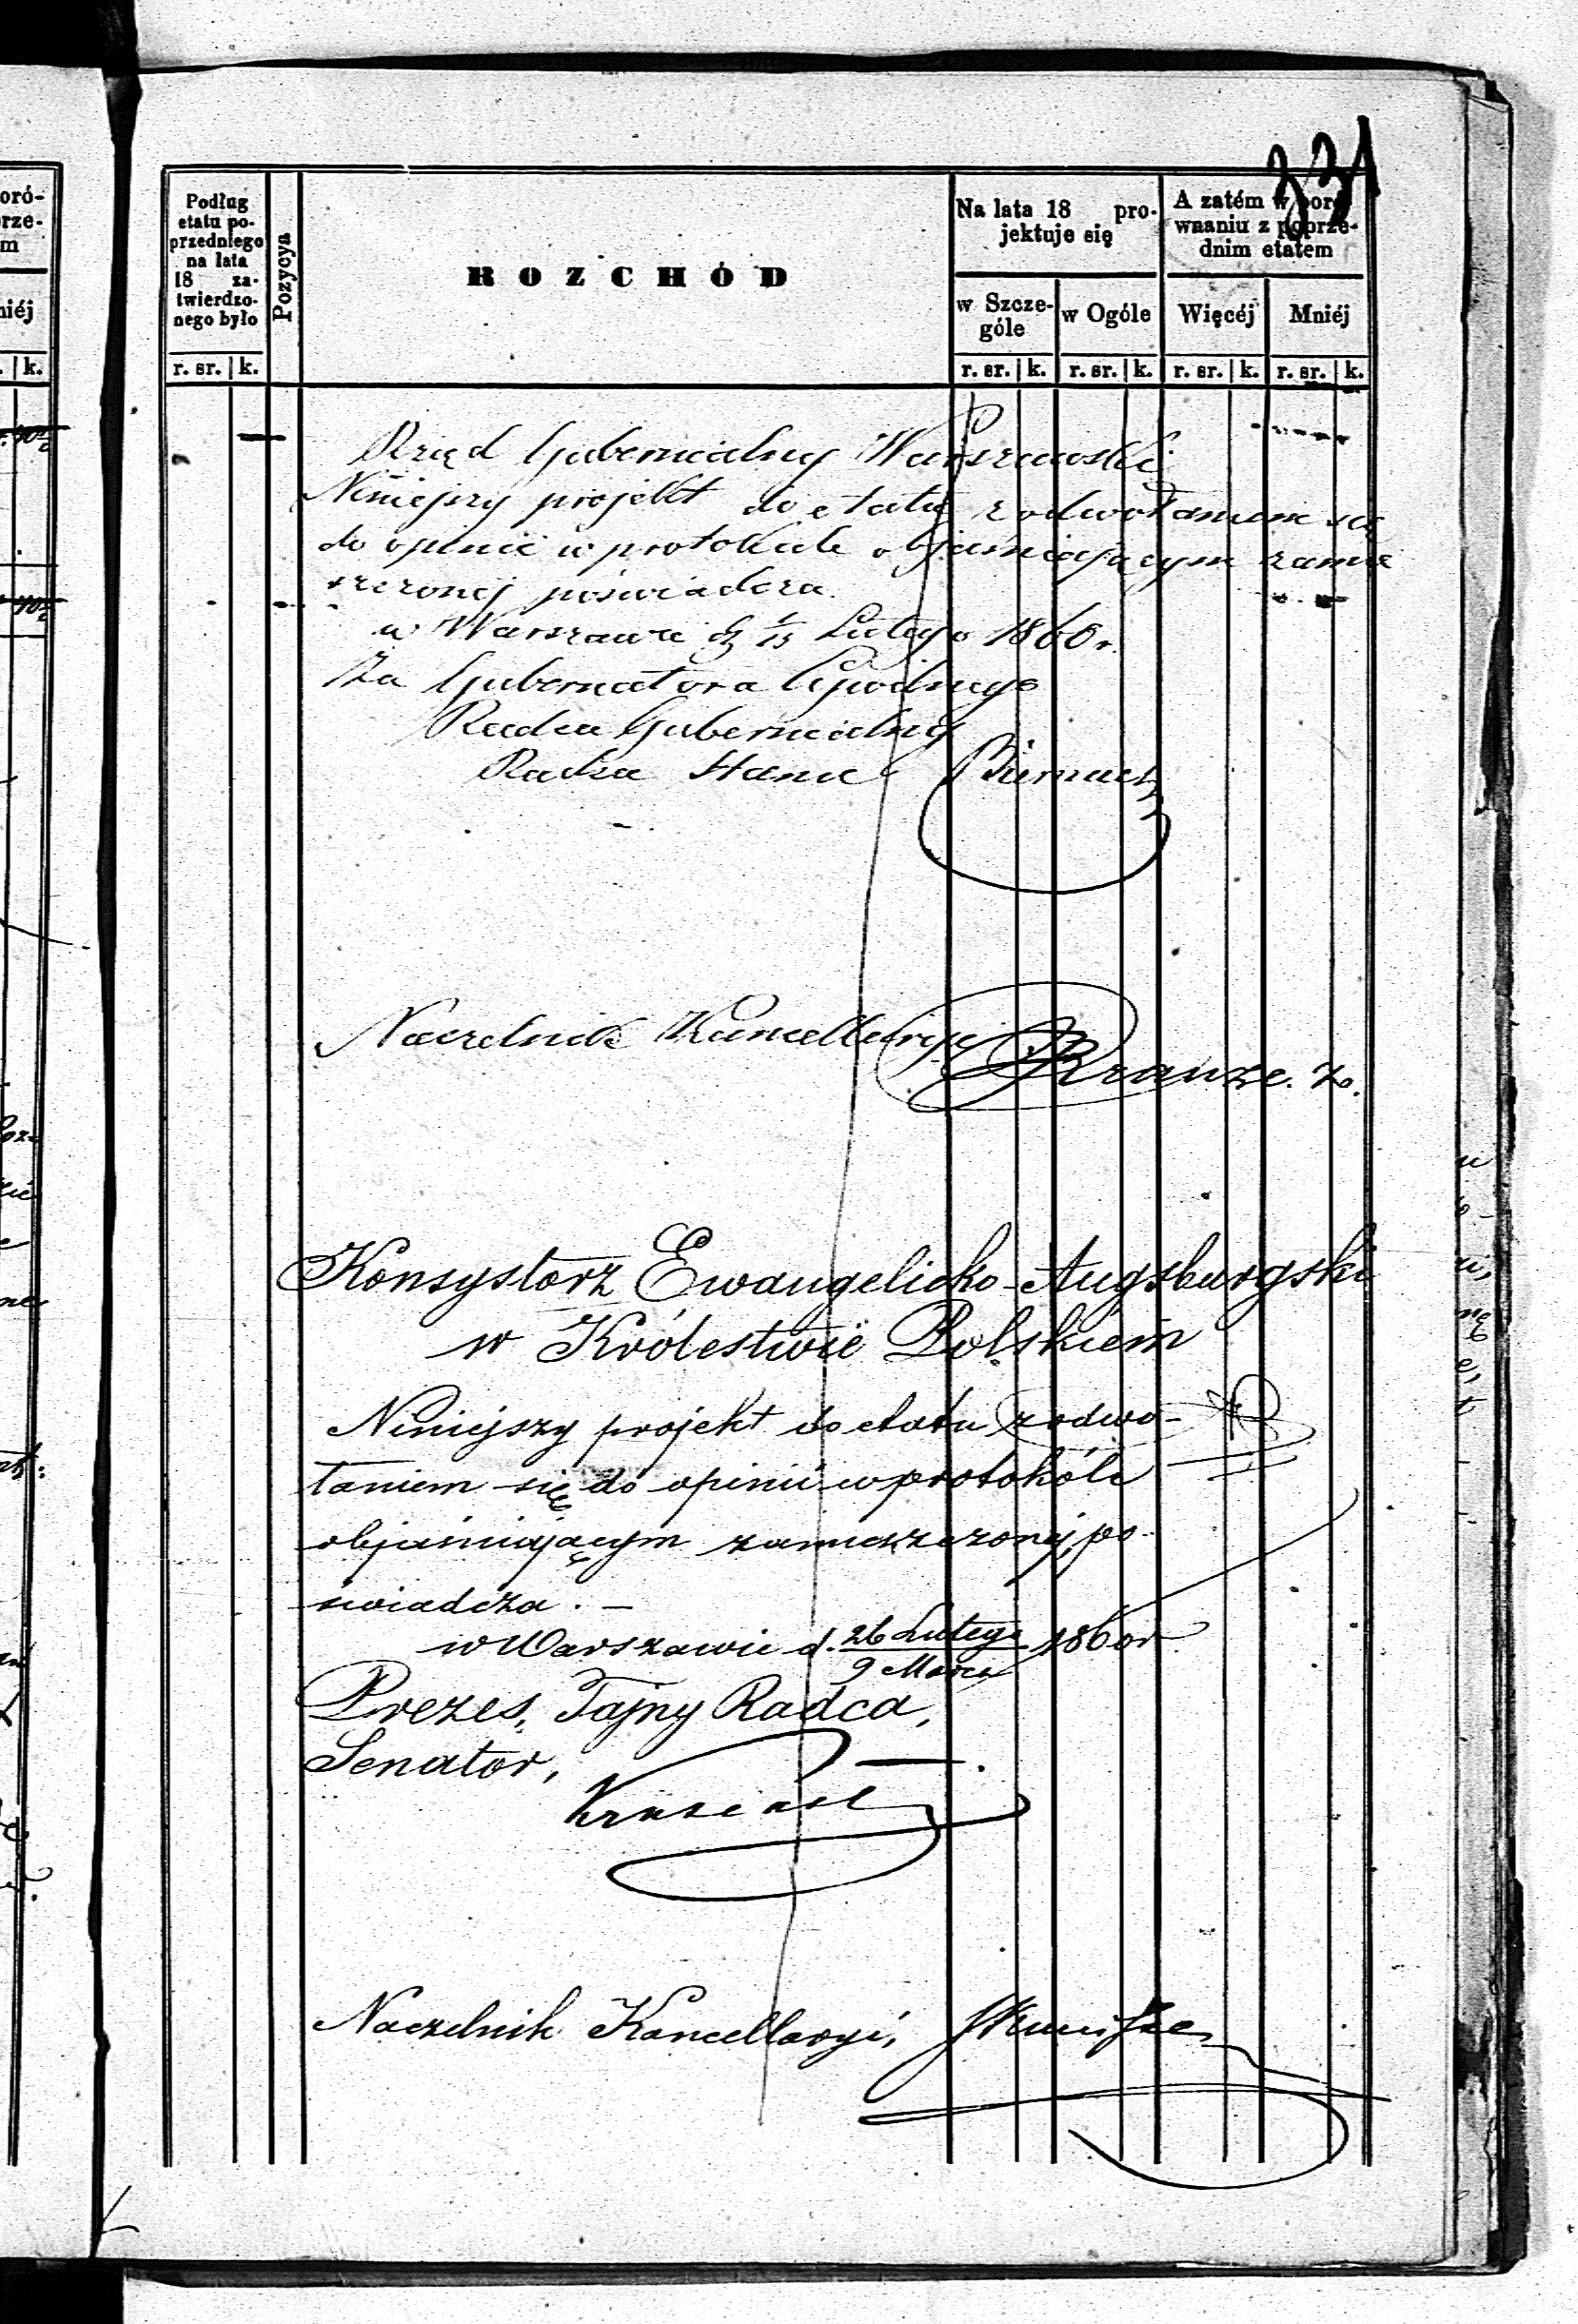 331
Podług
etatu po-
przedniego
na lata
18 za-
twierdzo-
nego było
Pozycya
ROZCHÓD
Na lata 18 pro-
jektuje się
A zatém w poró-
wnaniu z poprze-
dnim etatem
w Szcze-
góle
w Ogóle
Więcéj
Mniéj
r. sr. k.
r. sr. k. r. sr. k. r. sr. k. r. sr. k.
Rząd Gubernialny Warszawski
Niniejszy projekt do etatu z odwołaniem się
do opinii w protokule objaśniającym zamie
szczonej poświadcza.
w Warszawie d. /15 Lutego 1860 r.
Za Gubernatora Cywilnego
Radca Gubernialny
Radca Stanu
Naczelnik Kancellaryi
Krauze.
Konsystorz Ewangelicko-Augsburgski
w Królestwie Polskiem
Niniejszy projekt do etatu z odwo-
łaniem się do opinii w protokóle
objaśniającym zamieszczonej, po-
świadcza. —
w Warszawie d. 26 Lutego / 9 Marca 1860 r.
Prezes, Tajny Radca,
Senator,
Naczelnik Kancellaryi,